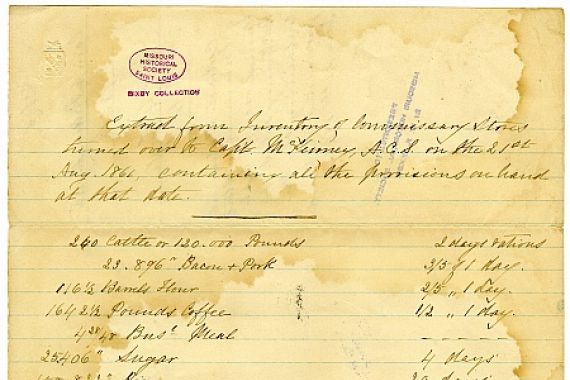 MISSOURI
HISTORICAL
SOCIETY
SAINT LOUIS
BIXBY COLLECTION
Extract from Inventory of Commissary Stores
turned over to Capt. McFinney, A.C.S. on the 21st
Aug. 1861, containing all the provisions on hand
at that date.
240 Cattle or 120.000 Pounds 2 days rations
23.896" Bacon & Pork 3/5 of 1 day.
116 1/2 Barrels Flour 2/5 " 1 day.
1642 1/2 Pounds Coffee 1/2 " 1 day.
Bus. Meal - - - - - -
25406" Sugar 4 days